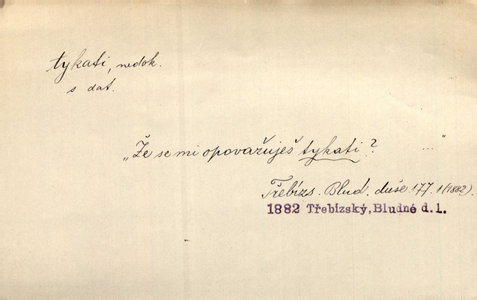 tykati, nedok.
s dat.
„Že se mi opovažuješ tykati? ... "
Třebízs. Blud. duše 177. 1 (1882).
1882 Třebízský, Bludné d.1.